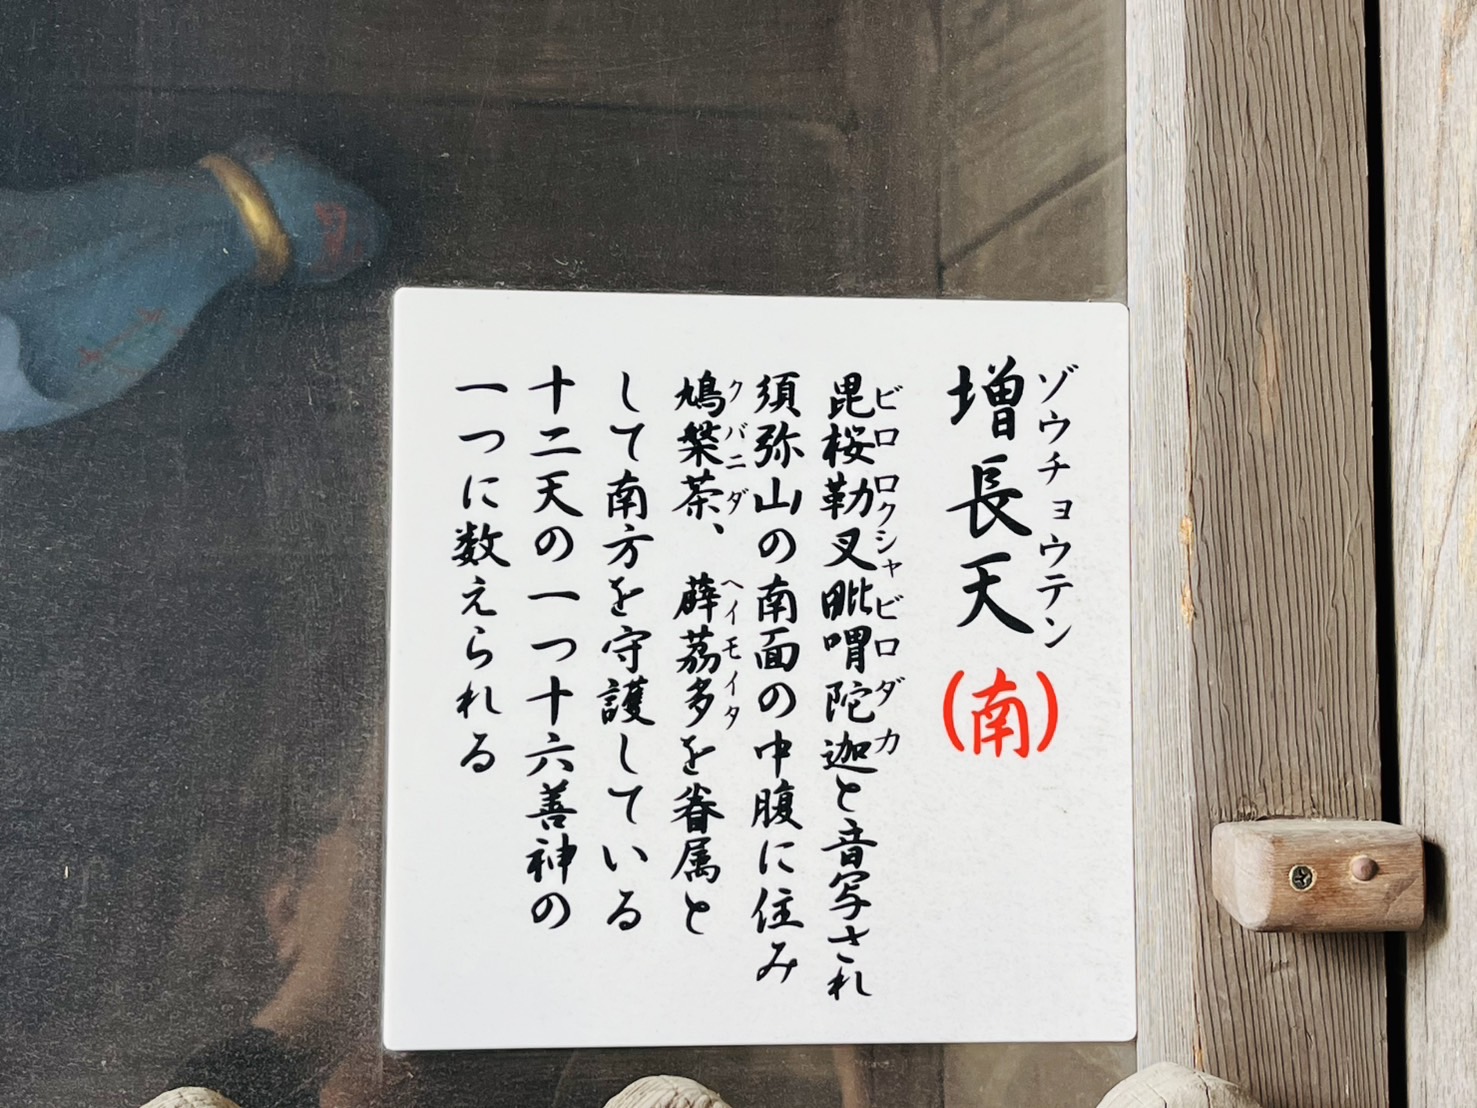 増長天(南)
ゾウチョウテン
毘桜勒叉毗喟陀迦と音写され
ビロロクシャビロダカ
須弥山の南面の中腹に住み
鳩槃茶、薜茘多を眷属と
クバニダ ヘイモイタ
して南方を守護している
十二天の一つ十六善神の
一つに数えられる